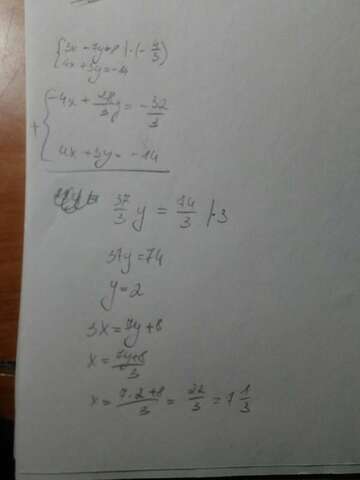 3x - 7y = 8 | · (-4/3)
4x + 3y = -14
-4x + 28/3 y = -32/3
+
4x + 3y = -14
37/3 y = 74/3 | · 3
37y = 74
y = 2
3x = 7y + 8
x = 7y+8/3
x = 7·2+8/3 = 22/3 = 7 1/3